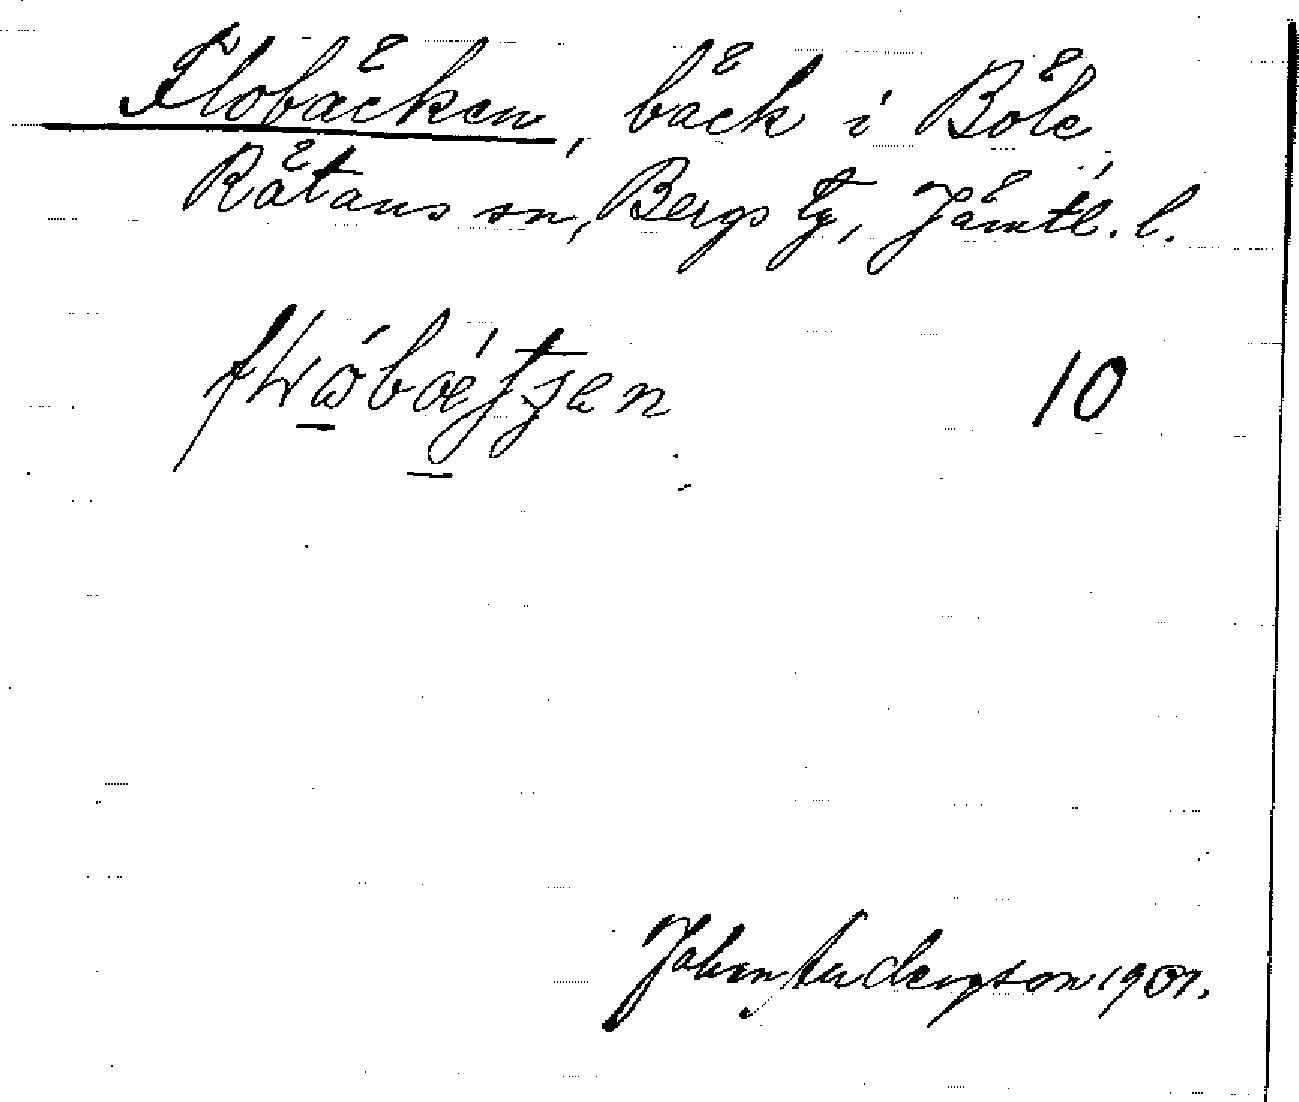 Flobäcken, bäck i Böle,
Rätans sn, Bergs tg, Jämtl. l.
10
John Andersson 1901.